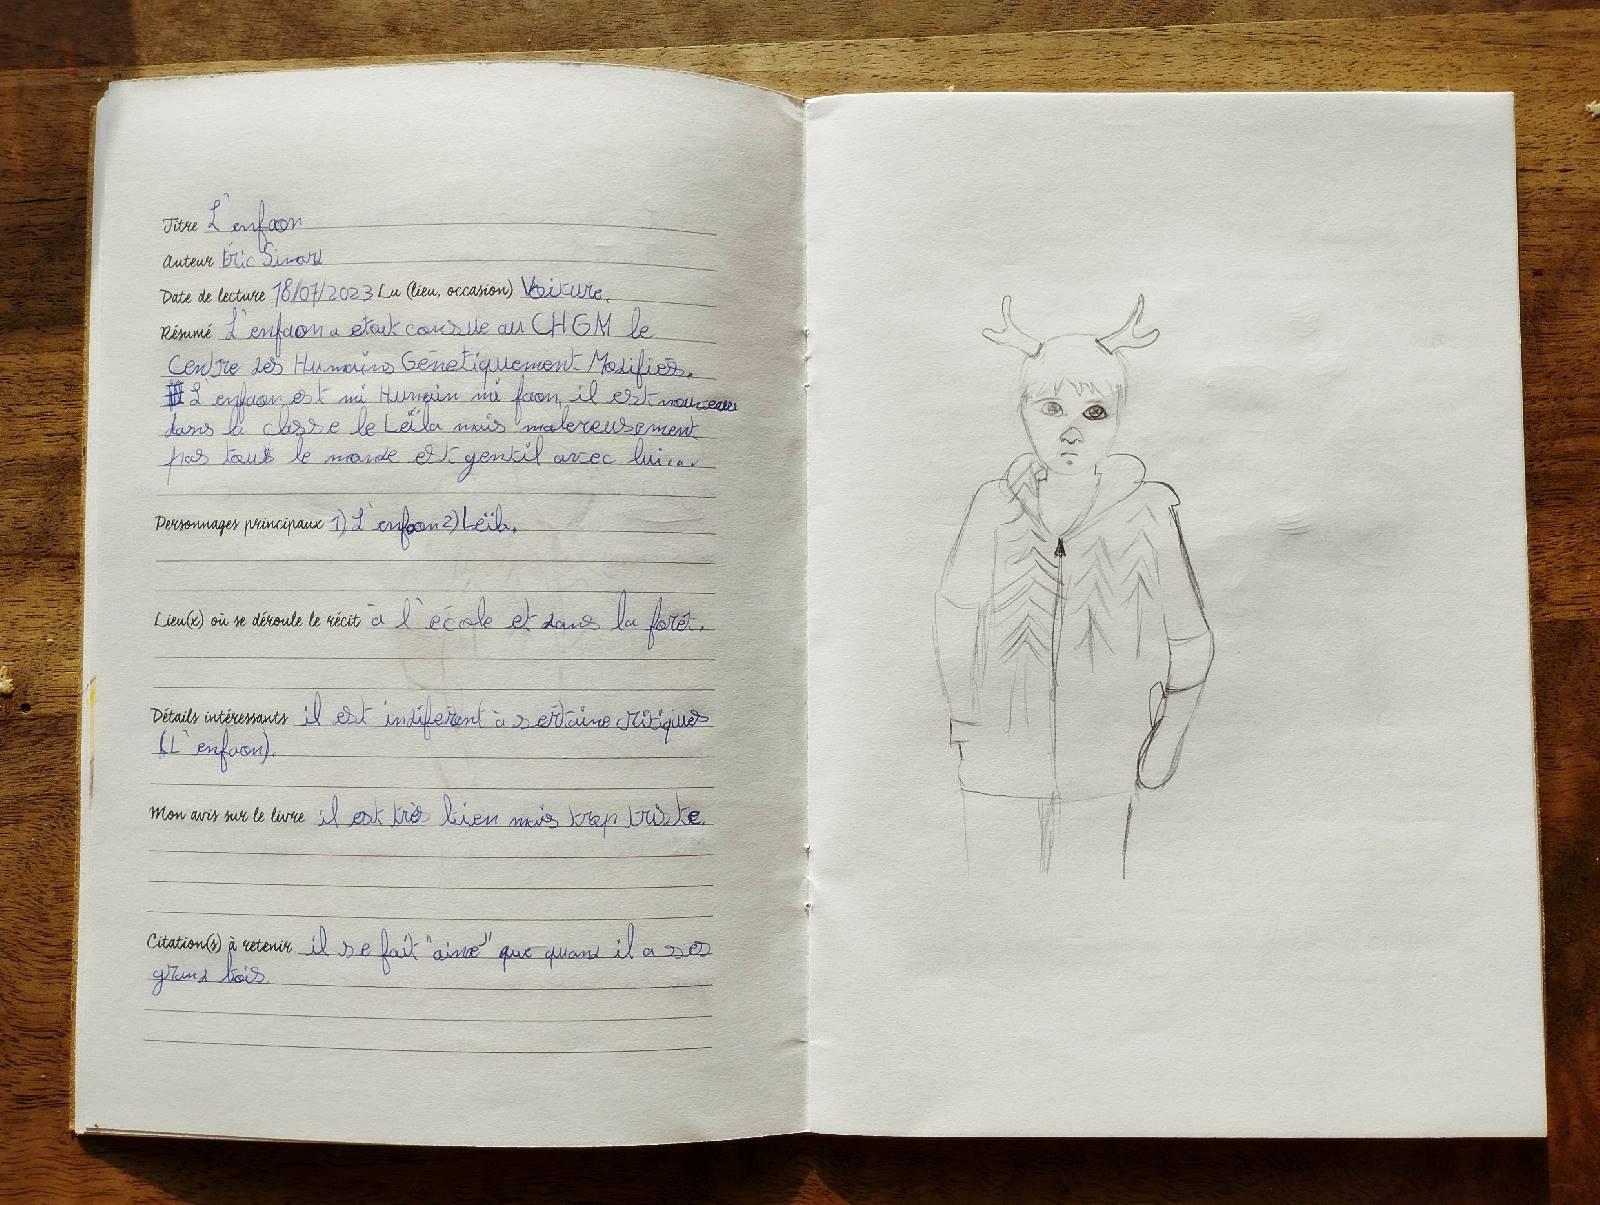 Titre L'enfaon
Auteur Éric Simard
Date de lecture 18/07/2023 Lu (lieu, occasion) Voiture.
Résumé L'enfaon a etait consue au CHGM le
Centre des Humains Génétiquement Modifiés.
L'enfaon est mi Humain mi faon, il est nouveau
dans la classe le Leïla mais malereusement
pas tous le monde est gentil avec lui...
Personnages principaux 1) L'enfaon 2) Leïla.
Lieu(x) où se déroule le récit à l'école et dans la forêt.
Détails intéressants il est indiferent à sertaine critiques
(L'enfaon).
Mon avis sur le livre il est très bien mais trop triste.
Citation(s) à retenir il se fait "aimé" que quand il a ses
grand bois.